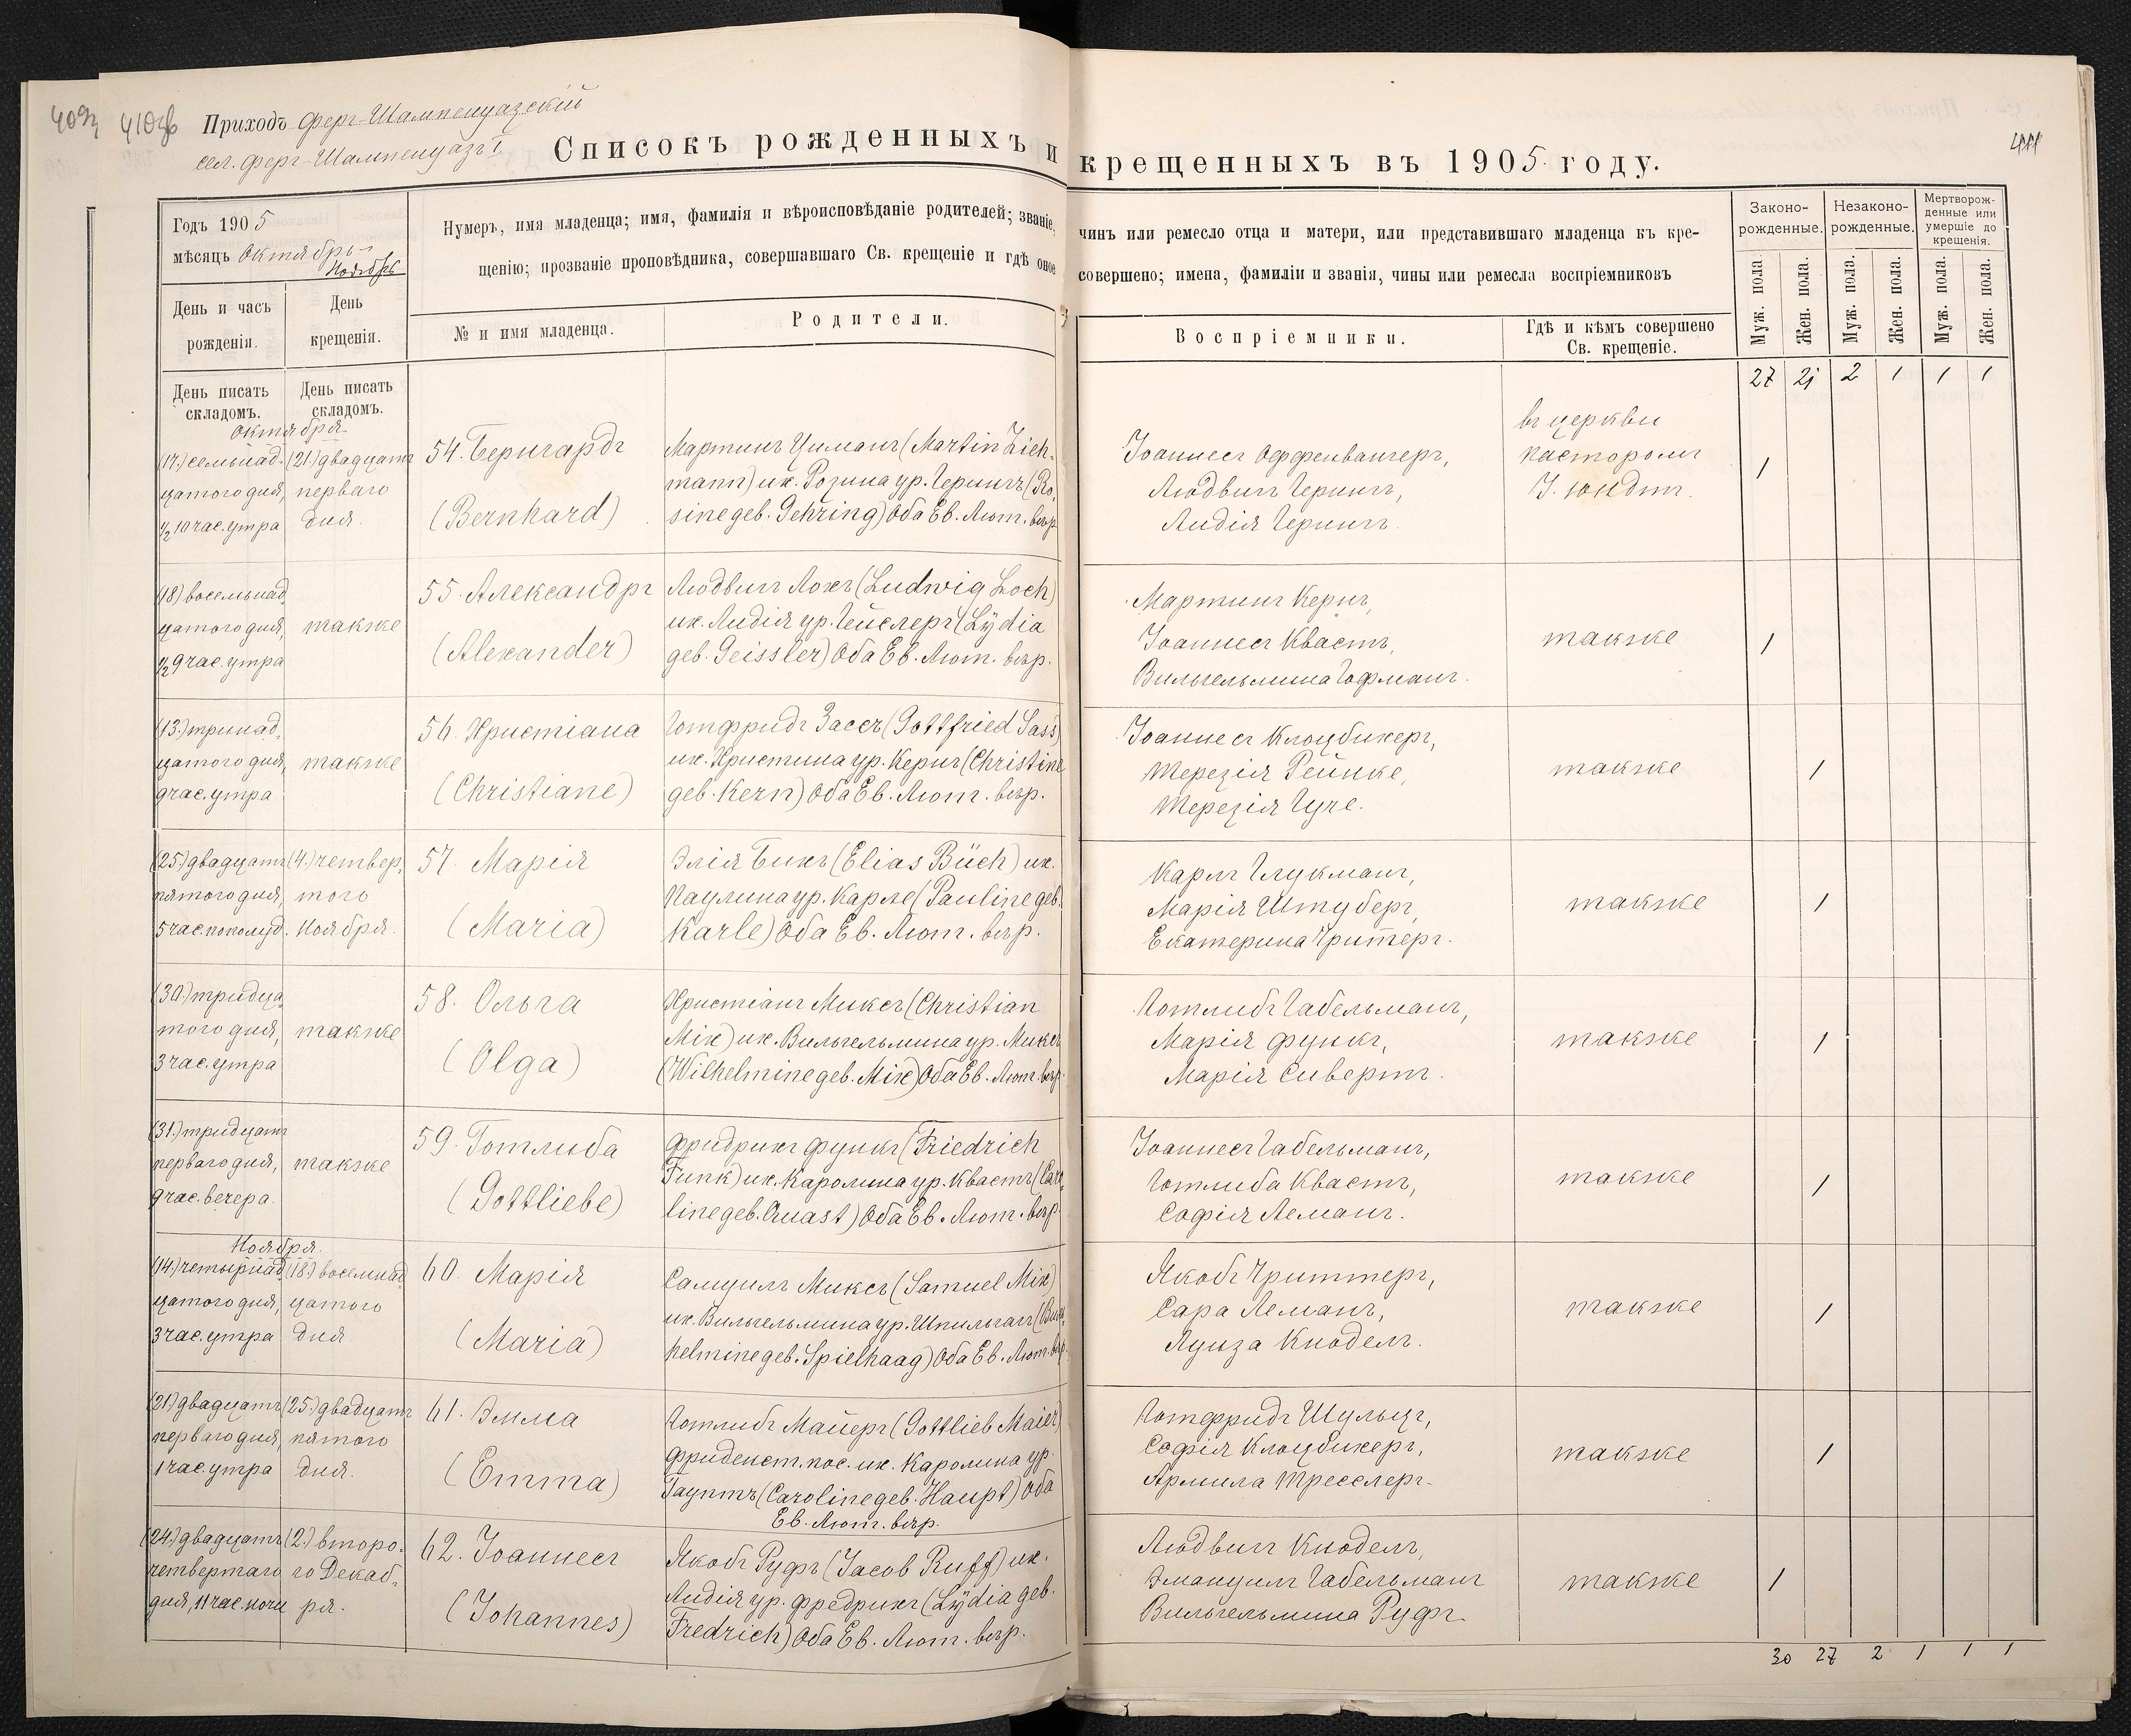 410об
Приходъ Ферг-Шампенуазскій
сел. Ферг-Шампенуазъ I
Списокъ рожденныхъ и крещенныхъ въ 1905 году.
Годъ 1905
мѣсяцъ Октябрь-
Ноябрь
Нумеръ, имя младенца; имя, фамилія и вѣроисповѣданіе родителей; званіе, чинъ или ремесло отца и матери, или представившаго младенца къ кре-
щенію; прозваніе проповѣдника, совершавшаго Св. крещеніе и гдѣ оное совершено; имена, фамиліи и званія, чины или ремесла воспріемниковъ
Законо-
рожденные.
Незаконо-
рожденные.
Мертворож-
денные или
умершіе до
крещенія.
День и часъ
рожденія.
День
крещенія.
№ и имя младенца.
Родители.
Воспріемники.
Гдѣ и кѣмъ совершено
Св. крещеніе.
Муж. пола.
Жен. пола.
Муж. пола.
Жен. пола.
Муж. пола.
Жен. пола.
День писать
складомъ.
День писать
складомъ.
27 21 2 1 1 1
Октября.
(17.) семьнад-
цатого дня,
½ 10 час. утра
(21.) двадцать
перваго
дня.
54. Бернгардъ
(Bernhard)
Мартинъ Циманъ (Martin Zieh-
mann) и ж. Розина ур. Герингъ (Ro-
sine geb. Gehring) Оба Ев. Лют. вѣр.
Іоаннесъ Оффенвангеръ,
Людвигъ Герингъ,
Лидія Герингъ.
въ церкви
пасторомъ
І. Юндтъ.
1
(18) восемьнад-
цатого дня,
½ 9 час. утра
также
55. Александръ
(Alexander)
Людвигъ Лохъ (Ludwig Loch)
и ж. Лидія ур. Гейслеръ (Lydia
geb. Geissler) Оба Ев. Лют. вѣр.
Мартинъ Кернъ,
Іоаннесъ Квастъ,
Вильгельмина Гофманъ.
также
1
(13.) тринад-
цатого дня,
9 час. утра
также
56. Христіана
(Christiane)
Готфридъ Зассъ (Gottfried Sass)
и ж. Христина ур. Кернъ (Christine
geb. Kern) Оба Ев. Лют. вѣр.
Іоаннесъ Клоцбихеръ,
Терезія Рейнке,
Терезія Гуче.
также
1
(25.) двадцать
пятого дня,
5 час. пополуд.
(4.) четвер-
того
Ноября.
57. Марія
(Maria)
Элія Бихъ (Elias Büch) и ж.
Паулина ур. Карле (Pauline geb.
Karle) Оба Ев. Лют. вѣр.
Карлъ Глукманъ,
Марія Штуберъ,
Екатерина Критеръ.
также
1
(30.) тридца-
того дня,
3 час. утра
также
58. Ольга
(Olga)
Христіанъ Миксъ (Christian
Mix) и ж. Вильгельмина ур. Миксъ
(Wilhelmine geb. Mix) Оба Ев. Лют. вѣр.
Готлибъ Габельманъ,
Марія Функъ,
Марія Сивертъ.
также
1
(31.) тридцать
перваго дня,
9 час. вечера.
также
59. Готлиба
(Gottliebe)
Фридрихъ Функъ (Friedrich
Funk) и ж. Каролина ур. Квастъ (Caro-
line geb. Quast) Оба Ев. Лют. вѣр.
Іоаннесъ Габельманъ,
Готлиба Квастъ,
Софія Леманъ.
также
1
Ноября.
(14.) четырнад-
цатого дня,
3 час. утра
(18.) восемнад-
цатого
дня
60. Марія
(Maria)
Самуилъ Миксъ (Samuel Mix)
и ж. Вильгельмина ур. Шпильгагъ (Wil-
helmine geb. Spielhaag) Оба Ев. Лют. вѣр.
Якобъ Криттеръ,
Сара Леманъ,
Луиза Кнодель.
также
1
(21.) двадцать
перваго дня,
1 час. утра
(25.) двадцать
пятого
дня.
61. Эмма
(Emma)
Готлибъ Майеръ (Gottlieb Maier)
Фриденст. пос. и ж. Каролина ур.
Гауптъ (Caroline geb. Haupt) Оба
Ев. Лют. вѣр.
Готфридъ Шульцъ,
Софія Клоцбихеръ,
Армила Тресслеръ.
также
1
(24.) двадцать
четвертаго
дня, 11 час. ночи
(2.) второ-
го Декаб-
ря.
62. Іоаннесъ
(Johannes)
Якобъ Руфъ (Jacob Ruff) и ж.
Лидія ур. Фредрихъ (Lydia geb.
Fredrich) Оба Ев. Лют. вѣр.
Людвигъ Кнодель,
Эмануилъ Габельманъ
Вильгельмина Руфъ.
также
1
30 27 2 1 1 1